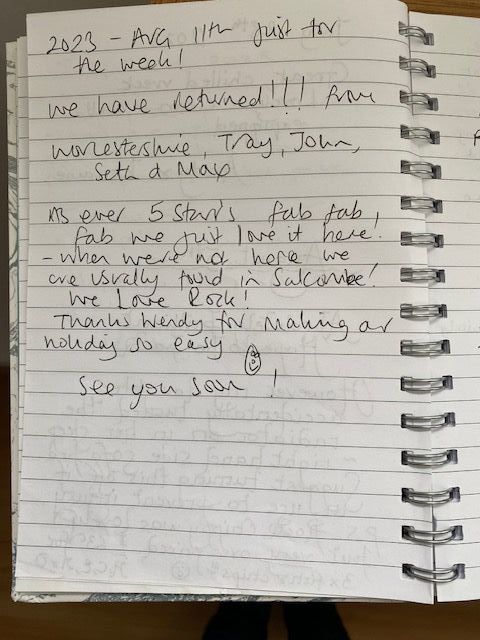 2023 - AUG 11th just for
the week!
we have returned!!! from
Worcestershire, Tray, John,
Seth & Max
As ever 5 Star's fab fab,
fab we just love it here!
- when were not here we
are usually found in Salcombe!
We Love Rock!
Thanks Wendy for making our
holiday so easy
See you soon !